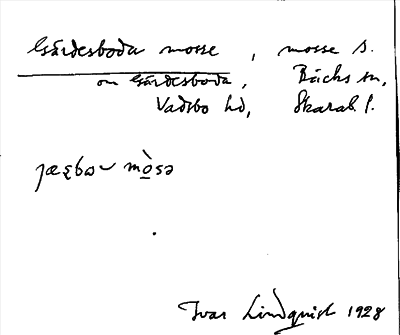 Gärdesboda mosse, mosse S.
om Gärdesboda, Bäcks sn,
Vadsbo hd, Skarab. l.
mò̠sə
Ivar Lindquist 1928